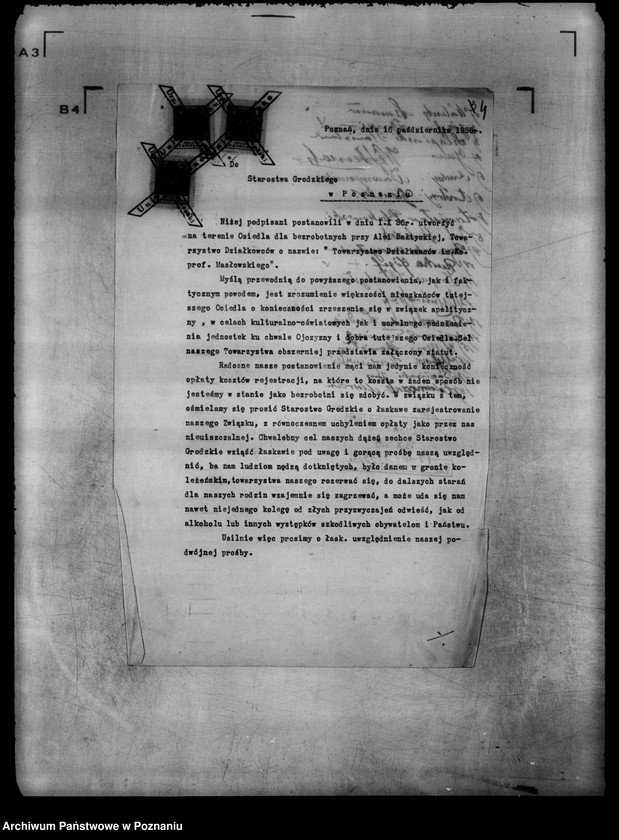 A3
B4
Poznań, dnia 16 października 1936r.
Do
Starostwa Grodzkiego
w Poznaniu
Niżej podpisani postanowili w dniu I.X 36r. utworzyć
na terenie Osiedla dla bezrobotnych przy Alei Bałtyckiej, Towa-
rzystwo Działkowców o nazwie: " Towarzystwo Działkowców im.Ks.
prof. Masłowskiego".
Myślą przewodnią do powyższego postanowienia, jak i fak-
tycznym powodem, jest zrozumienie większości mieszkańców tutej-
szego Osiedla o konieczności zrzeszenie się w związek apolitycz-
ny , w celach kulturalno-oświatowych jak i moralnego podniesie-
nia jednostek ku chwale Ojczyzny i dobra tutejszego Osiedla.Cel
naszego Towarzystwa obszerniej przedstawia załączony statut.
Radosne nasze postanowienie mąci nam jedynie konieczność
opłaty kosztów rejestracji, na które to koszta w żaden sposób nie
jesteśmy w stanie jako bezrobotni się zdobyć. W związku z tem,
ośmielamy się prosić Starostwo Grodzkie o łaskawe zarejestrowanie
naszego Związku, z równoczesnem uchyleniem opłaty jako przez nas
nieuiszczalnej. Chwalebny cel naszych dążeń zechce Starostwo
Grodzkie wziąść łaskawie pod uwagę i gorącą prośbę naszą uwzględ-
nić, ba nam ludziom nędzą dotkniętych, było danem w gronie ko-
leżeńskim,towarzystwa naszego rozerwać się, do dalszych starań
dla naszych rodzin wzajemnie się zagrzewać, a może uda się nam
nawet niejednego kolegę od złych przyzwyczajeń odwieść, jak od
alkoholu lub innych występków szkodliwych obywatelom i Państwu.
Usilnie więc prosimy o łask. uwzględnienie naszej po-
dwójnej prośby.
Archiwum Państwowe w Poznaniu